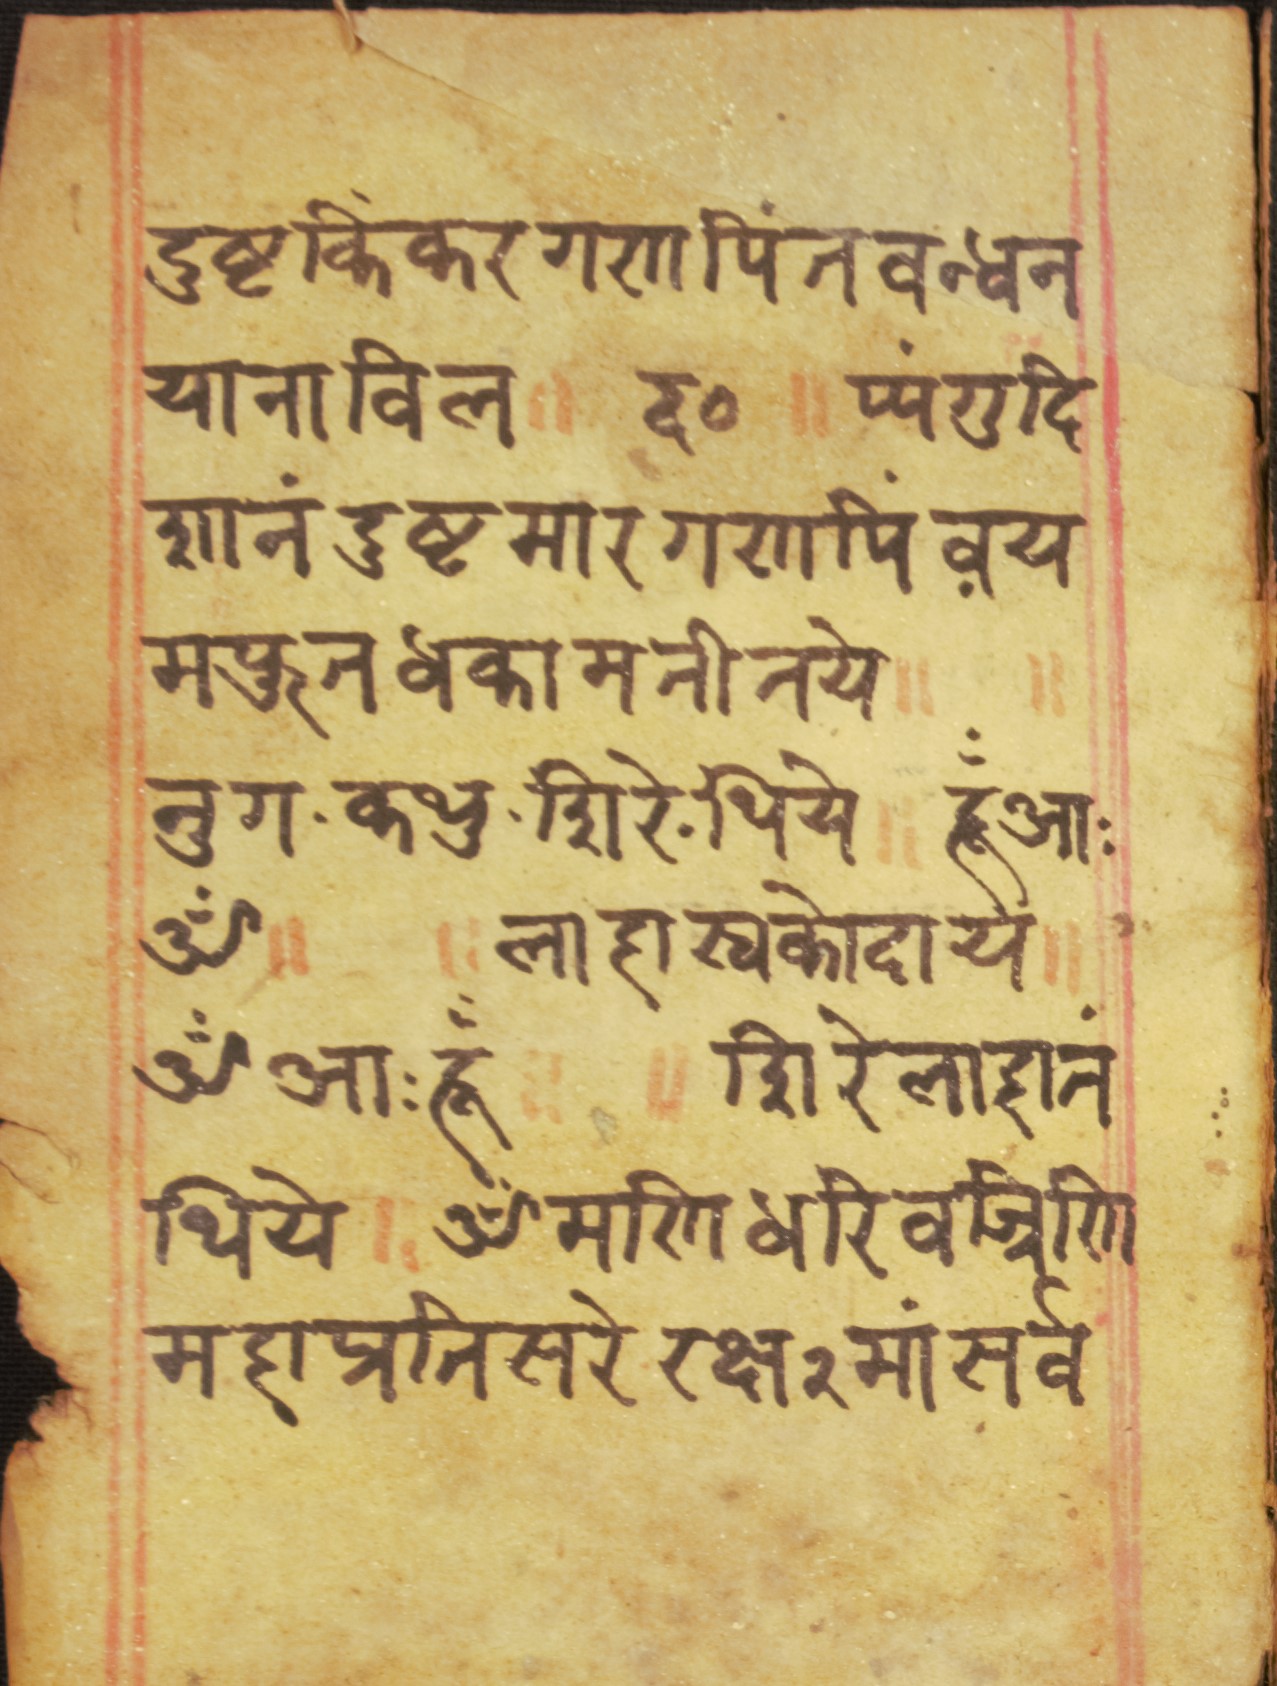 दुष्टकिंकरगणपिंतवन्धन
यानाविल ॥ ६० ॥ प्यंगुदि
शानं दुष्टमारगणपिं व़य
मफूनधकामनीनये ॥ ॥
नुग · कथु · शिरे · थिये ॥ हूँ आः
ॐ ॥ ॥ लाहास्वकोदायं ॥
ॐ आः हूँ ॥ ॥ शिरेलाहानं
थिये ॥ ॐ मणिधरि वज्रिणि
महाप्रतिसरे रक्ष २ मां सर्व